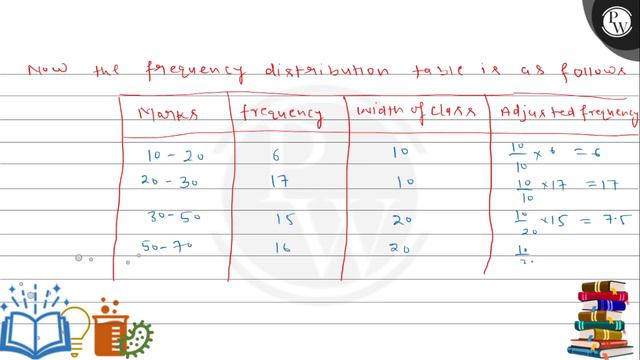 PW
Now the frequency distribution table is as follows
Marks frequency width of class Adjusted frequency
10-20 6 10 10/10 × 6 = 6
20-30 17 10 10/10 × 17 = 17
30-50 15 20 10/20 × 15 = 7.5
50-70 16 20 10/2